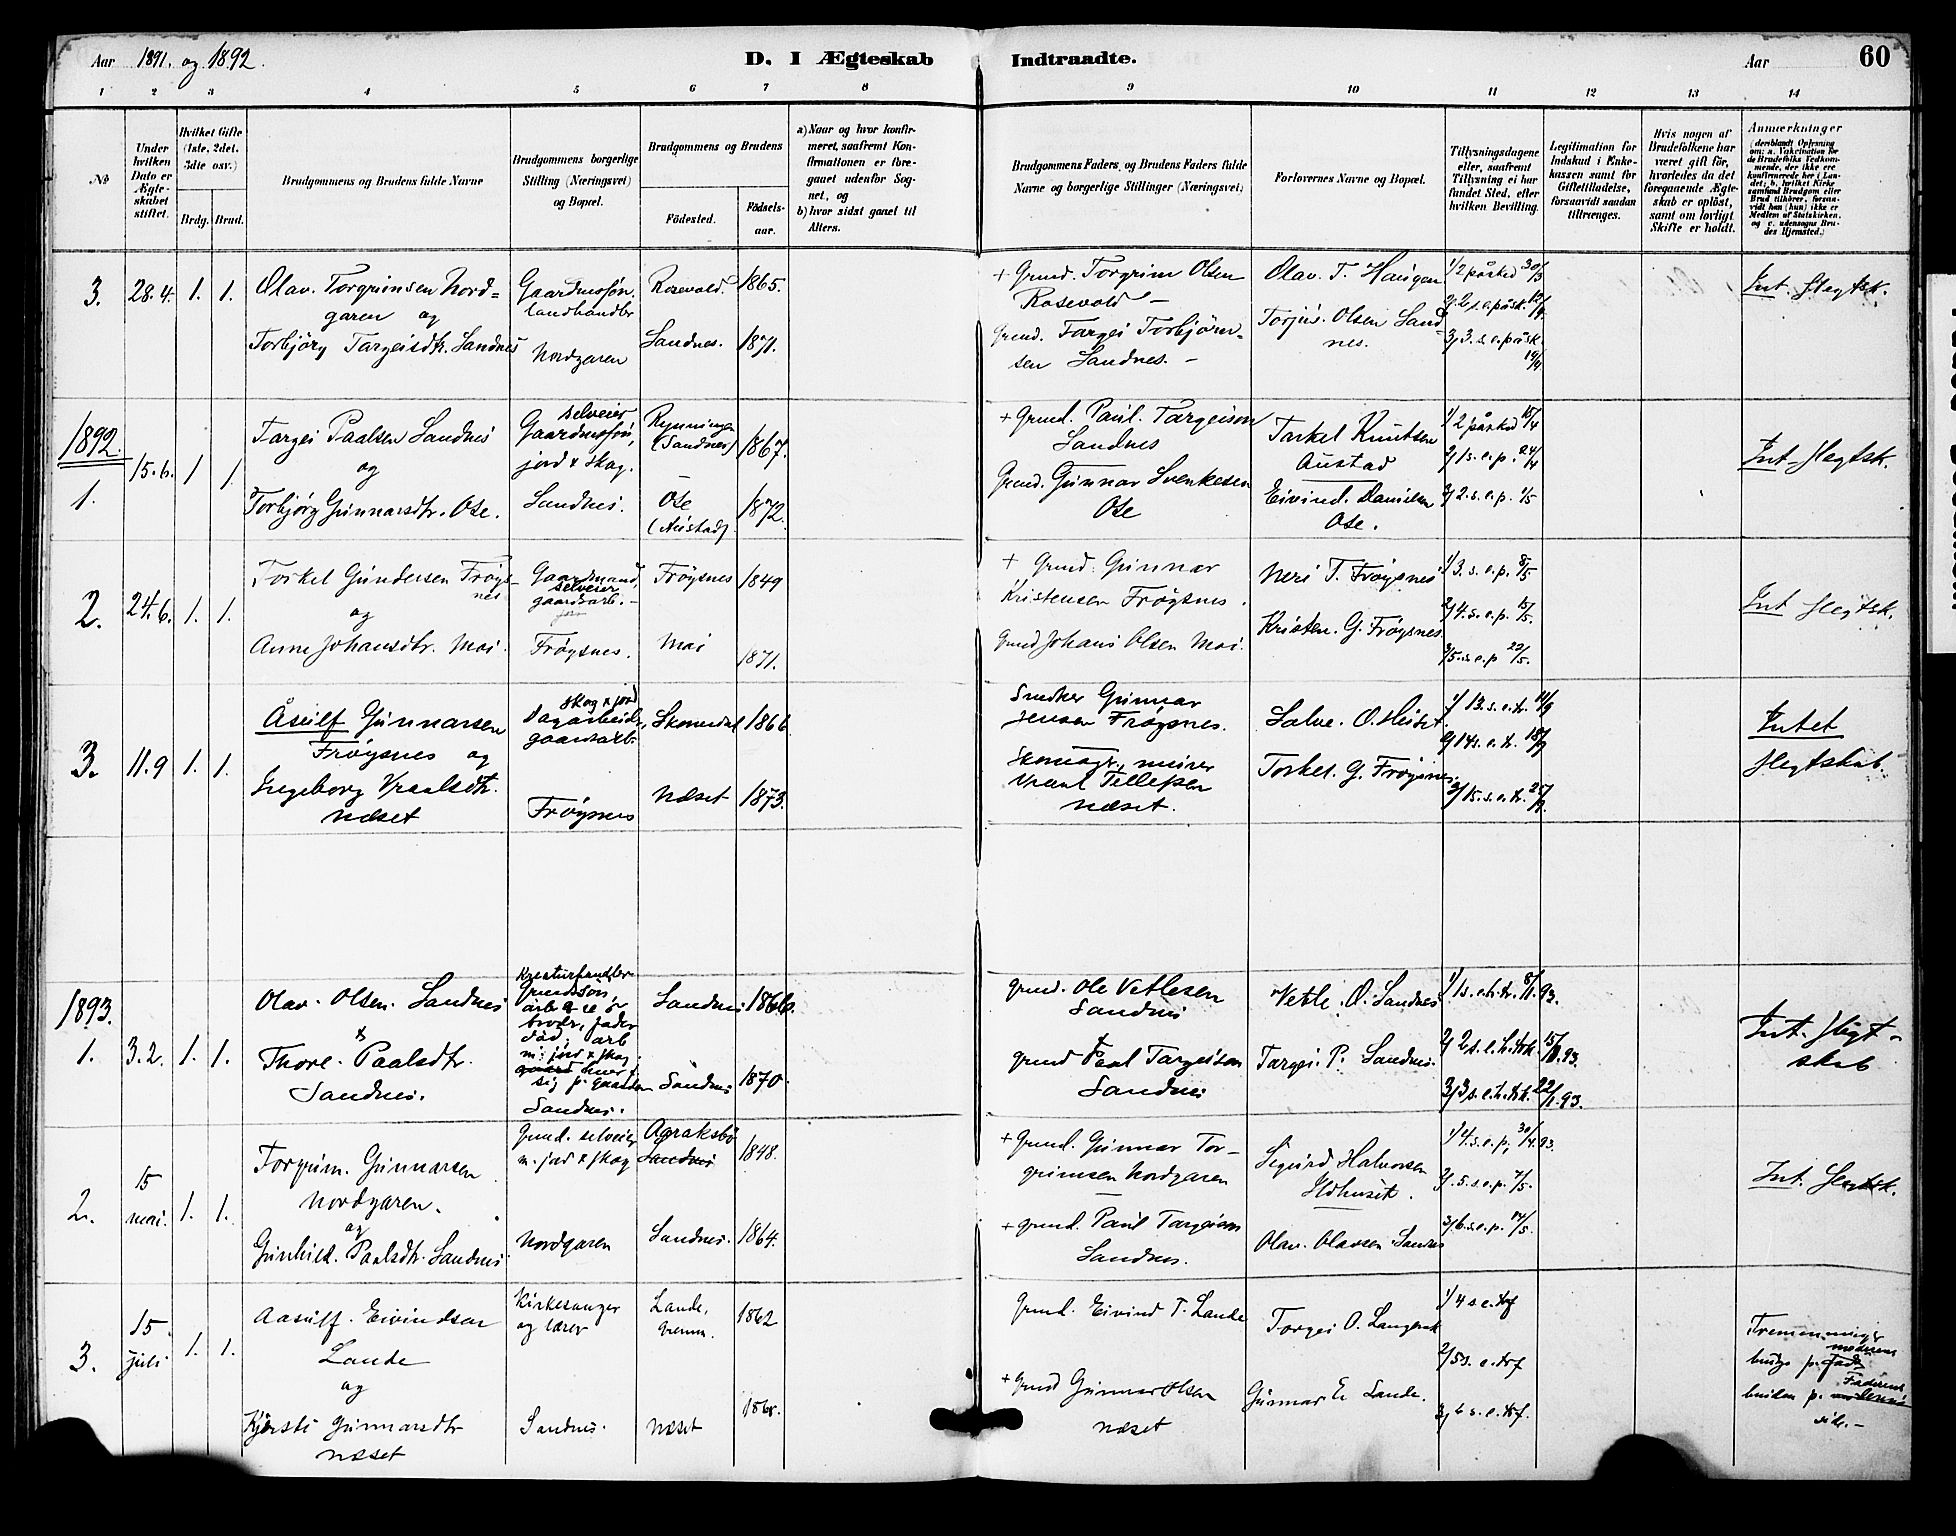 Aar 1891. og 1892.
D. I Ægteskab Indtraadte.
Aar 60
1 2 3 4 5 6 7 8 9 10 11 12 13 14
No
Under hvilken Dato er Ægteskabet stiftet.
Hvilket Gifte (1ste, 2det, 3dte osv.)
Brdg. Brud.
Brudgommens og Brudens fulde Navne
Brudgommens borgerlige Stilling (Næringsvei) og Bopæl.
Brudgommens og Brudens
Födested.
Födsels-aar.
a) Naar og hvor konfirmeret, saafremt Konfirmationen er foregaaet udenfor Sognet, og
b) hvor sidst gaaet til Alters.
Brudgommens Faders og Brudens Faders fulde Navne og borgerlige Stillinger (Næringsvei)
Forlovernes Navne og Bopæl.
Tillysningsdagene eller, saafremt Tillysning ei har fundet Sted, efter hvilken Bevilling.
Legitimation for Indskud i Enkekassen samt for Giftetilladelse, forsaavidt saadan tiltrænges.
Hvis nogen af Brudefolkene har været gift før, hvorledes da det foregaaende Ægteskab er opløst, samt om lovligt Skifte er holdt.
Anmærkninger
(deriblandt Oplysning om: a. Vakcination for de Brudefolks Vedkommende, der ikke ere konfirmerede her i Landet; b. hvilket Kirkesamfund Brudgom eller Brud tilhører, forsaavidt han (hun) ikke er Medlem af Statskirken, og c. udensogns Brudes Hjemsted.)
3. 28.4. 1. 1.
Olav Torgrimsen Nord=
garen og
Torbjörg Targeisdtr. Sandnes
Gaardmssön.
landhandler
Nordgaren
Rosevold. 1865.
Sandnes. 1871.
+ Grmd. Torgrim Olsen
Rosevold –
Grmd. Targei Torbjörn=
sen Sandnes. –
Olav. T. Haugen
Torjus. Olsen Sand
nes.
1/2 påskd 30/3
2/ 2 s.e. påsk. 12/4
3/ 3. s.e. påsk. 19/4
Int. Slegtsk.
1892.
1. 15.6. 1 1.
Targei Paalsen Sandnes
og
Torbjörg Gunnarsdtr. Ose.
selveier
Gaardmssön,
jord & skog.
Sandnes.
Rynningen
(Sandnes) 1867.
Ose
(Austad). 1872.
+ Grmd. Paul. Targeison
Sandnes
Grmd. Gunnar Svenkesen
Ose
Torkel Knutsen
Austad
Eivind. Danielsen
Ose.
1/ 2 påskd 18/4
2/ 1 s.e.p. 24/4
3/ 2. s.e.p. 1/5
Int. Slegtsk.
2. 24.6. 1. 1.
Torkel Gundersen Fröys-
nes
og
Anne Johansdtr. Moi.
Gaardmand,
selveier
gaardsarb. –
Fröysnes.
Fröysnes 1849
Moi 1871.
+ Grmd. Gunnar
Kristensen Fröysnes.
Grmd Johans Olsen Moi.
Neri T. Fröysnes
Kristen. G. Fröysnes.
1/ 3. s.e.p. 8/5
2/ 4. s.e.p. 15/5.
3/ 5. s.e.p 22/5.
Int Slegtsk.
3. 11.9 1. 1.
Åsulf Gunnarsen
Fröysnes og
Ingeborg Vraalsdtr.
Næset
skog & jord
Dagarbeider,
gaardsarb.
Fröysnes
Skomedal 1866
Næset 1873.
Snedker Gunnar
Jensen Fröysnes.
Skomager, murer
Vraal Tellefsen
Næset.
Salve. O. Heiset.
Torkel. G. Fröysnes.
1/ 13. s.e.tr. 11/9
2/ 14 s.e.tr. 18/9
3/ 15. s.e.tr. 25/9
Intet
Slegtskab.
1893.
1. 3.2. 1. 1.
Olav. Olsen. Sandnes
&
Thore. Paalsdtr.
Sandnes.
Kreaturhandler
död; arb
m: jord & skog
sig p. gaarden
Sandnes.
Sandnes 1866.
Sandnes 1870.
Grmd. Ole Vetlesen
Sandnes
Grmd Paul Targeison
Sandnes
Vetle. O. Sandnes
Targei P. Sandnes.
1/ 1 s.e.h.tr. 8/1.93.
2/ 2 s.e.h.trk. 15/1.93.
3/ 3 s.e.h.trk. 22/1.93.
Int. Slegt-
skab
2. 15 mai. 1. 1.
Torgrim. Gunnarsen
Nordgaren.
og
Gunhild. Paalsdtr. Sandnes
Grmd. selveier
m. jord & skog
Nordgaren
Agraksbö
Sandnes 1848.
Sandnes. 1864.
+ Grmd. Gunnar Tor-
grimsen Nordgaren
+ Grmd. Paul Targeison
Sandnes.
Sigurd Halvorsen
Ildhuset.
Olav. Olavsen. Sandnes
1/ 4. s.e.p, 30/4.93.
2/. 5. s.e.p. 7/5.
3/ 6. s.e.p. 14/5.
Int. Slegtsk.
3. 15. juli 1. 1.
Aasulf. Eivindsen
Lande
og
Kjersti Gunnarsdtr
Næset
Kirkesanger
og lærer
Sandnes.
Lande, 1862
Næset 1868.
Grmd. Eivind T. Lande
+ Grmd Gunnar Olsen
Næset
Torgei O. Langerak
Gunnar E. Lande.
1/ 4 s.e.trf
2/ 5 s.e.trf
3/ 6 s.e.trf.
Tremenninger
moderens
brudg. p. Fade
Faderens
bruden p. moderens
side. –